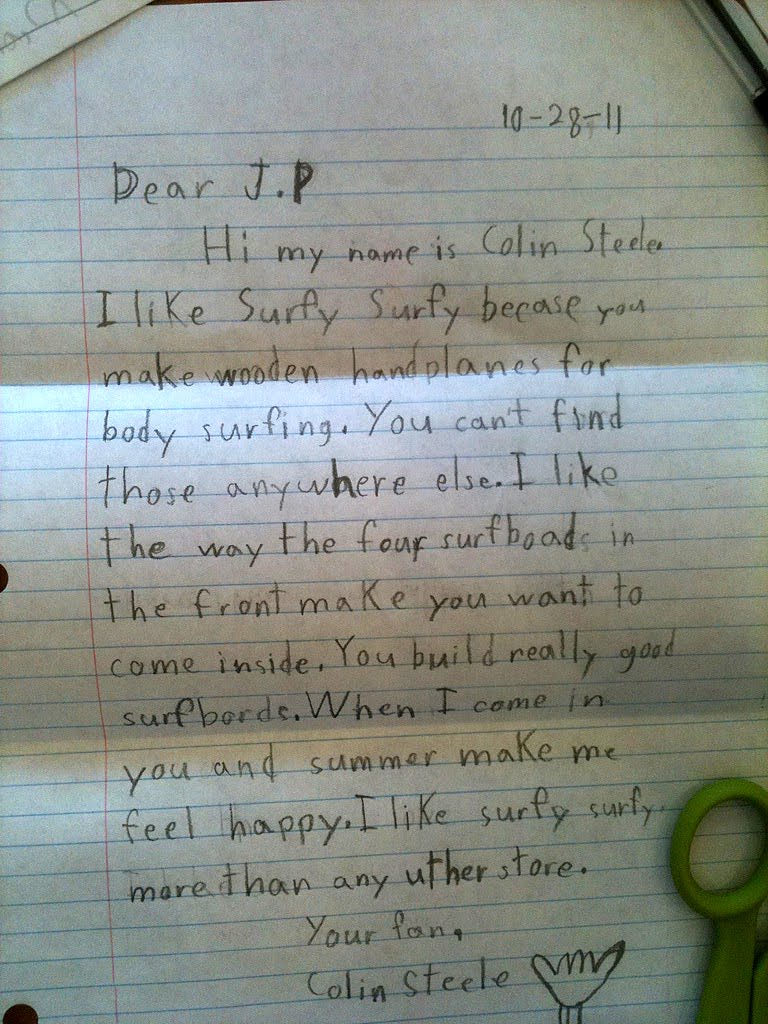 10-28-11
Dear J.P
Hi my name is Colin Steele.
I like Surfy Surfy becase you
make wooden handplanes for
body surfing. You can't find
those anywhere else. I like
the way the four surfboads in
the front make you want to
come inside. You build really good
surfbords. When I come in
you and summer make me
feel happy. I like surfy surfy
more than any uther store.
Your fan,
Colin Steele